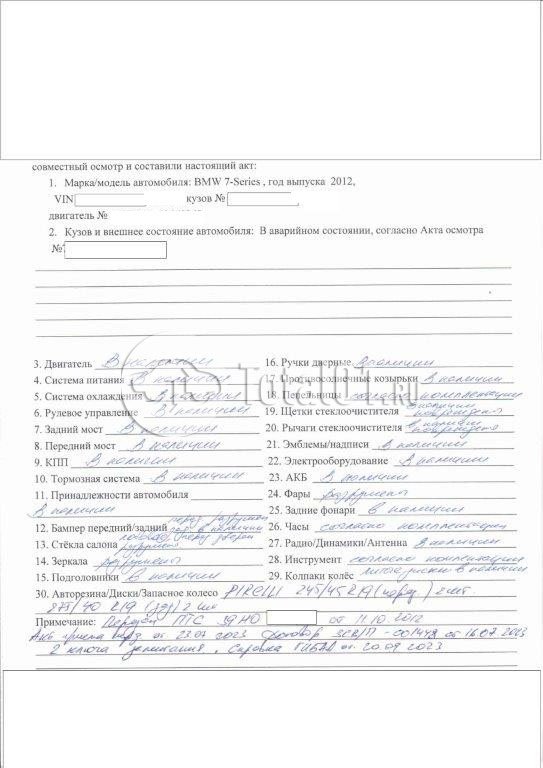 совместный осмотр и составили настоящий акт:
1. Марка/модель автомобиля: BMW 7-Series , год выпуска 2012,
VIN кузов № ,
двигатель №
2. Кузов и внешнее состояние автомобиля: В аварийном состоянии, согласно Акта осмотра
№
TotalO1.ru
3. Двигатель В наличии
4. Система питания В наличии
5. Система охлаждения В наличии
6. Рулевое управление В наличии
7. Задний мост В наличии
8. Передний мост В наличии
9. КПП В наличии
10. Тормозная система В наличии
11. Принадлежности автомобиля
В наличии
12. Бампер передний/задний перед разрушен зад в наличии
13. Стёкла салона
14. Зеркала разрушены
15. Подголовники в наличии
16. Ручки дверные В наличии
17. Противосолнечные козырьки В наличии
18. Пепельницы согласно комплектации
19. Щетки стеклоочистителя в наличии
20. Рычаги стеклоочистителя в наличии
21. Эмблемы/надписи в наличии
22. Электрооборудование в наличии
23. АКБ В наличии
24. Фары разрушены
25. Задние фонари в наличии
26. Часы согласно комплектации
27. Радио/Динамики/Антенна В наличии
28. Инструмент согласно комплектации
29. Колпаки колёс литые диски в наличии
30. Авторезина/Диски/Запасное колесо PIRELLI 245/45 R19 (перед) 2 шт.
275/40 R19 (зад) 2 шт
Примечание: Передан ПТС 39 НО от 11.10.2012
Акт от 23.07 2023 договор от 16.07.2023
2 ключа зажигания, Справка ГИБДД от 20.09 2023